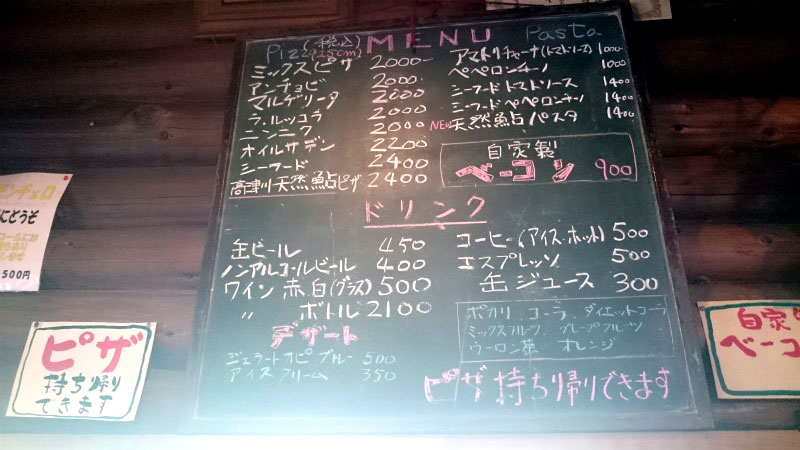 (税込) MENU Pasta
Pizza(25cm)
ミックスピザ 2000-
アンチョビ 2000-
マルゲリータ 2000
ラ.ルッコラ 2000
ニンニク 2000
オイルサデン 2200
シーフード 2400
高津川天然鮎ピザ 2400
アマトリチャーナ(トマトソース) 1000-
ペペロンチーノ 1000
シーフードトマトソース 1400
シーフードペペロンチーノ 1400
NEW 天然鮎パスタ 1400
自家製
ベーコン 900
ドリンク
缶ビール 450
ノンアルコールビール 400
ワイン 赤白(グラス) 500
〃 ボトル 2100
コーヒー(アイス・ホット) 500
エスプレッソ 500
缶ジュース 300
ポカリ コーラ ダイエットコーラ
ミックスフルーツ グレープフルーツ
ウーロン茶 オレンジ
デザート
ジェラートオピブルー 500
アイスクリーム 350
ピザ持ち帰りできます
にどうぞ
500円
ピザ
持ち帰り
できます
自家
ベーコ